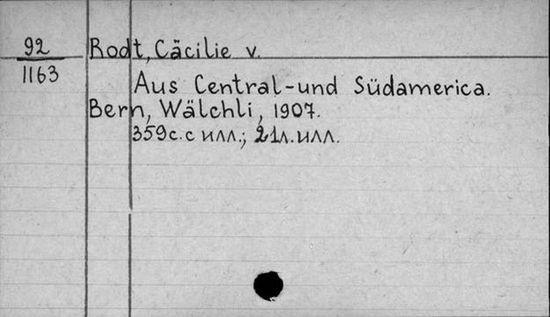 92 Rodt, Cäcilie v.
1163
Aus Central-und Südamerica.
Bern, Wälchli, 1907.
359с. с илл.; 21л. илл.